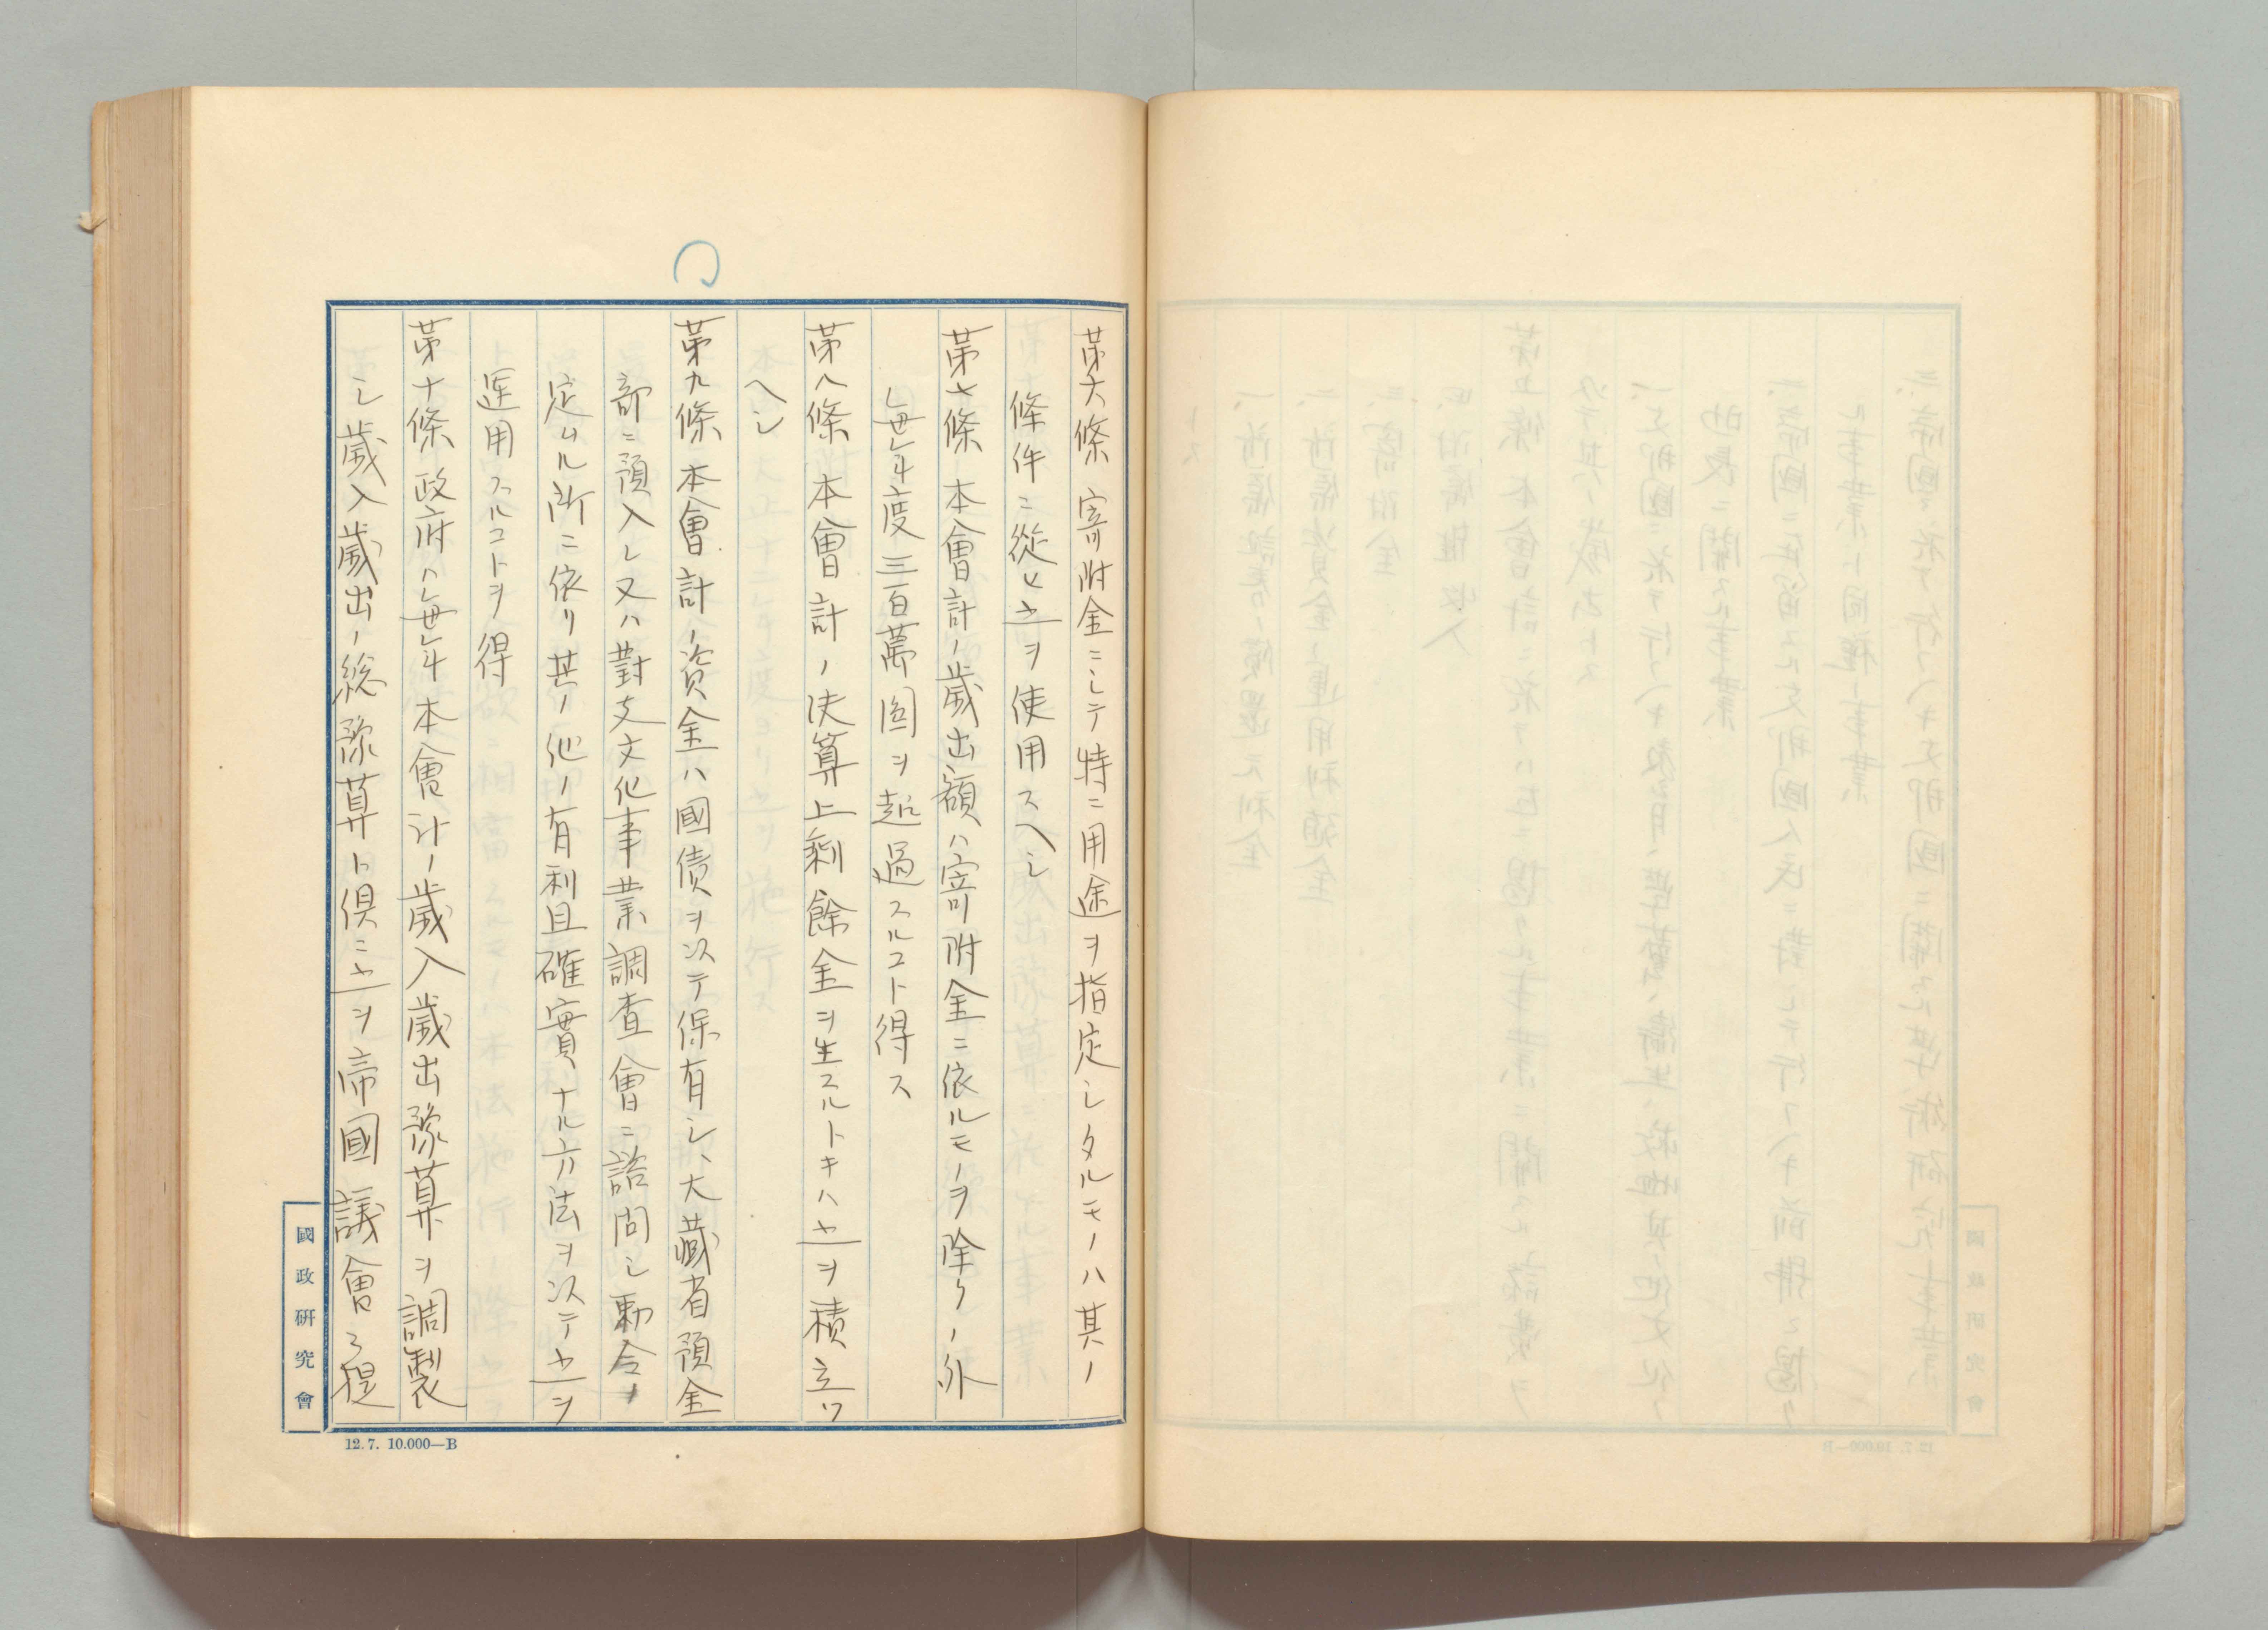 第六條 寄附金ニシテ特ニ用途ヲ指定シタルモノハ其ノ
條件ニ從ヒ之ヲ使用スヘシ
第七條 本會計ノ歳出額ハ寄附金ニ依ルモノヲ除クノ外
毎年度三百萬圓ヲ超過スルコト得ス
第八條 本會計ノ決算上剩餘金ヲ生スルトキハ之ヲ積立ツ
ヘシ
第九條 本會計ノ資金ハ國債ヲ以テ保有シ、大藏省預金
部ニ預入レ又ハ對支文化事業調査會ニ諮問シ勅令ノ
定ムル所ニ依リ其ノ他ノ有利且確實ナル方法ヲ以テ之ヲ
運用スルコトヲ得
第十條 政府ハ毎年本會計ノ歳入歳出豫算ヲ調製
シ歳入歳出ノ総豫算ト倶ニ之ヲ帝國議會ニ提
國政研究會
12.7. 10.000—B